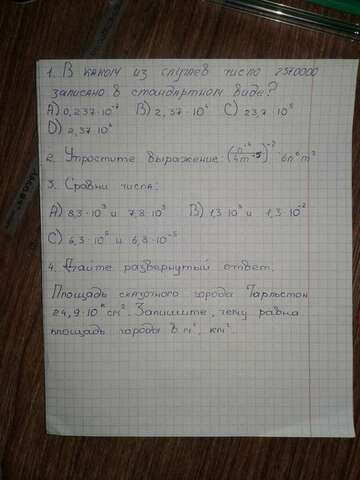 1. В каком из случаев число 2370000
записано в стандартном виде?
A) 0,237·10⁻⁷ B) 2,37·10⁶ C) 23,7·10⁵
D) 2,37·10⁴
2. Упростите выражение 6n⁶m³
3. Сравни числа:
A) 8,3·10³ и 7,8·10³ B) 1,3·10³ и 1,3·10⁻²
C) 6,3·10⁵ и 6,8·10⁻⁵
4. Дайте развернутый ответ.
Площадь сказочного города
24,9·10 см². Запишите, чему равна
площадь города в м², км².